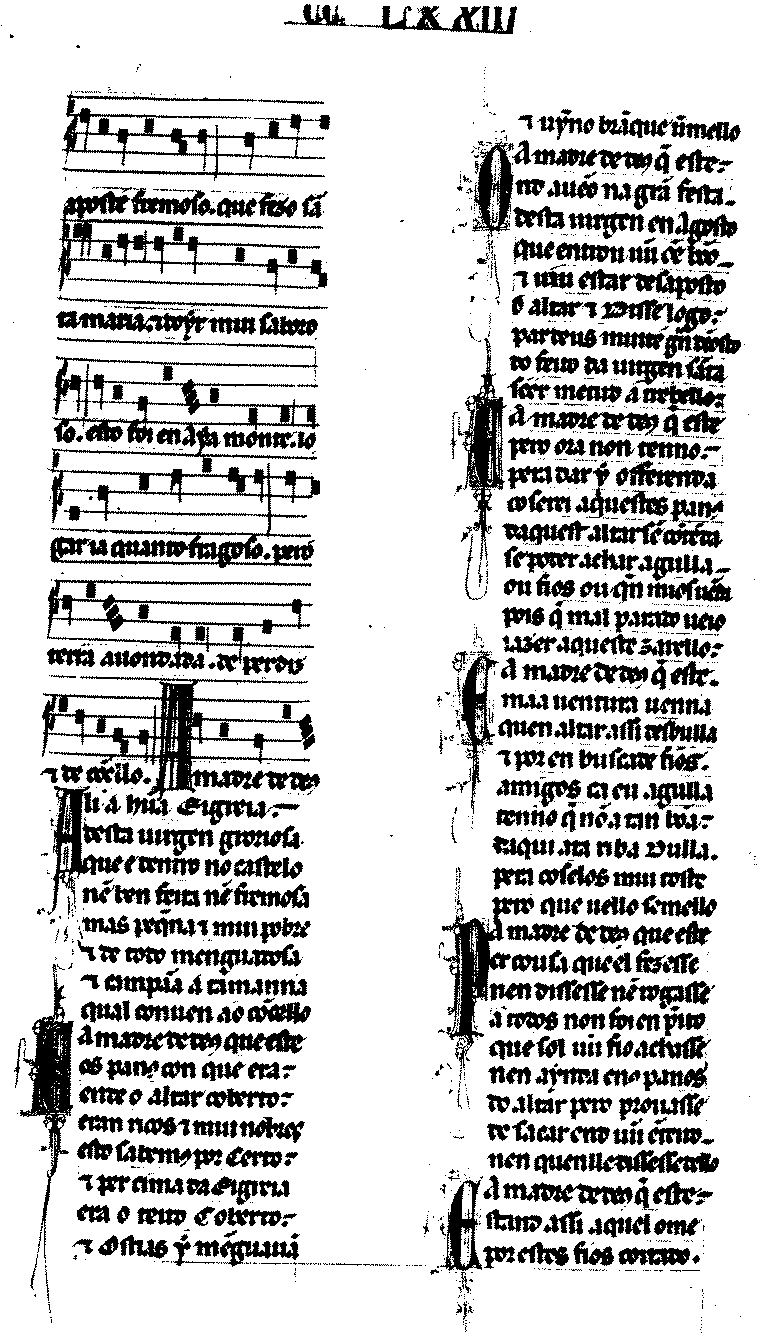 CC LXXIII
aposte fremoso. que fezo sã
ta maria. ⁊ oỹr mui sabro
so. esto foi en Aỹa monte. lo
gar ia quanto fragoso. pero
terra auondada. de perdiz
⁊ de cõello. A madre de de9
Ali á hũa Eigreia
desta uirgen groriosa
que e dentro no castelo
nẽ ben feita nẽ fremosa
mas peq̃na ⁊ mui pobre
⁊ de todo menguadosa
⁊ cãpãa á tamanna
qual conuen ao cõcello
A madre de de9 que este
os panos con que era
ente o altar coberto
eran ricos ⁊ mui nobres
esto sabemos por certo
⁊ per cima da Eigreia
era o teito coberto
⁊ Ostias ỹ mẽguauã
⁊ uỹno brãque uermello
A madre de de9 q̃ este
Ond aueo na grã festa
desta uirgen en Agosto
que entrou uu oe bõo
⁊ uiu estar desaposto
o altar ⁊ disse logo
par deus muit é grã dosto
do feito da uirgen sãta
seer metudo a trebello
A madre de de9 q̃ este
pero ora non tenno
pera dar ỹ offerenda
coserei aquestes panos
daquest altar sẽ cõteda
se poder achar agulla
ou fios ou quen mios uẽda
pois q̃ mal parado ueio
iazer aqueste zarello
A madre de de9 q̃ este
maa uentura uenna
quen altar assi desbulla
⁊ por en buscade fios
amigos ca eu agulla
tenno q̃ nõ á tan bõa
daqui ata riba dulla
pera coselos mui toste
pero que uello semello
A madre de de9 que este
Per cousa que el fezesse
nen dissesse nẽ rogasse
a todos non foi en prito
que sol uu fio achasse
nen aỹnda enos panos
do altar pero prouasse
de sacar end uu ẽteiro
nen quen lle dissesse dello
A madre de de9 q̃ este
Estand assi aquel ome
por estes fios coitado